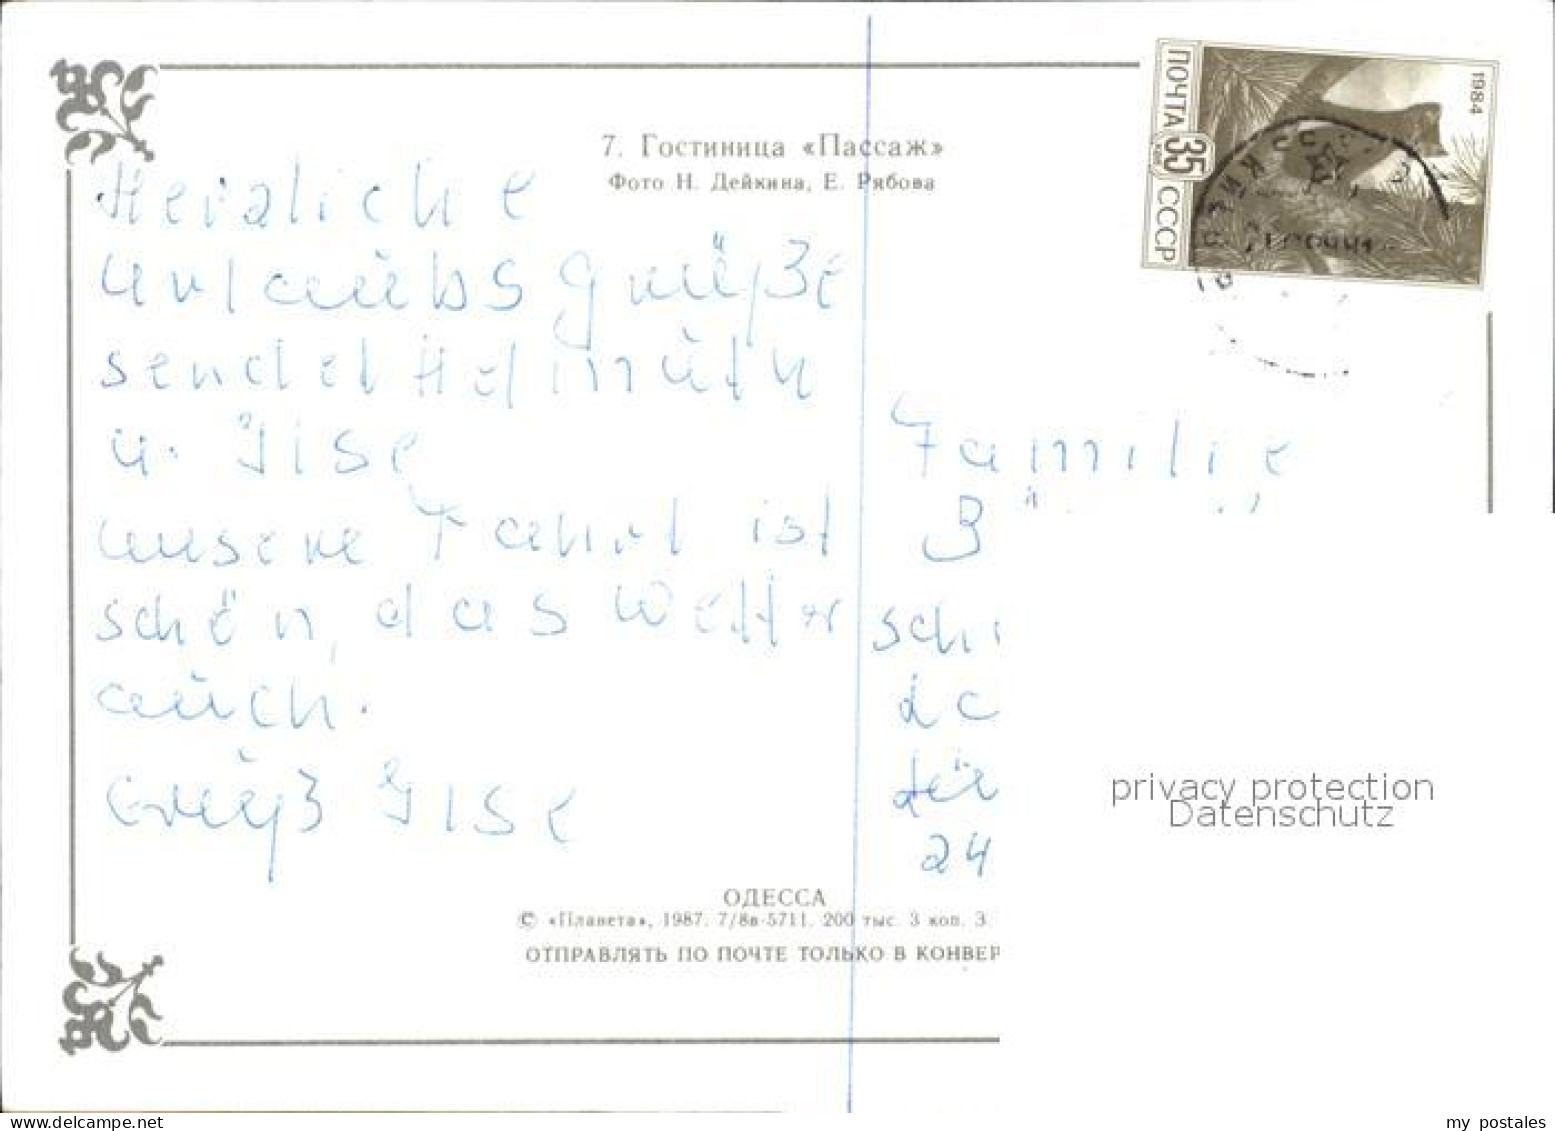 7. Гостиница «Пассаж»
Фото Н. Дейкина, Е. Рябова
1984
ПОЧТА 35 СССР
Herzliche
Urlaubs grüße
sendet Helmuth
u. Ilse
unsere Fahrt ist
schön, das Wetter
auch.
Gruß Ilse
Familie
B
sch
24
privacy protection
Datenschutz
ОДЕССА
© «Планета», 1987. 7/8в-5711. 200 тыс. 3 коп. З
ОТПРАВЛЯТЬ ПО ПОЧТЕ ТОЛЬКО В КОНВЕР
my postales